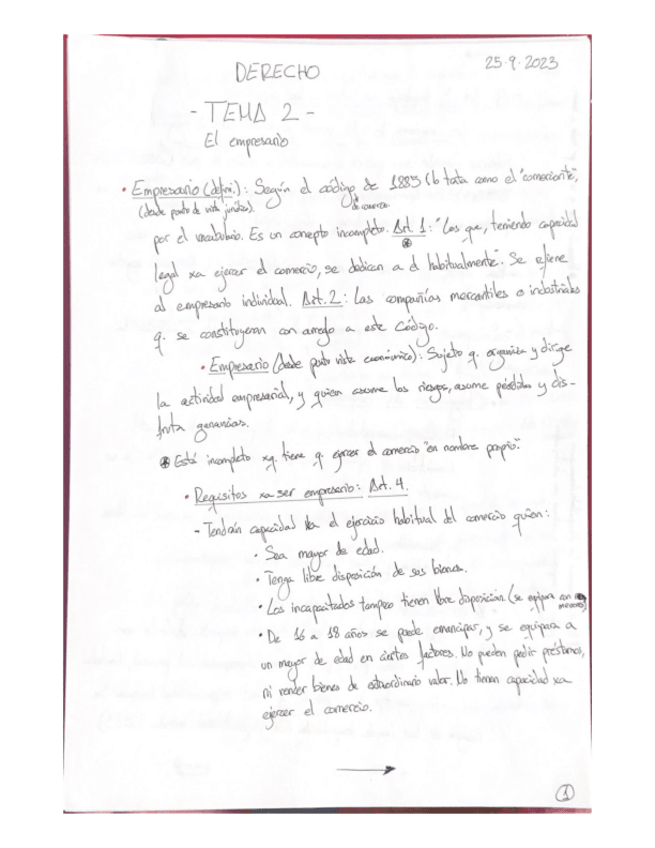 25·9·2023
DERECHO
- TEMA 2 -
El empresario
• Empresario (defini.): Según el código de 1885 (lo trata como el "comerciante",
(desde punto de vista jurídico). de comercio
por el vocabulario. Es un concepto incompleto. Art. 1: "Los que, teniendo capacidad
legal xa ejercer el comercio, se dedican a él habitualmente". Se refiere
al empresario individual. Art. 2: Las compañías mercantiles o industriales
q. se constituyeran con arreglo a este Código.
• Empresario (desde punto vista económico): Sujeto q. organiza y dirige
la actividad empresarial, y quien asume los riesgos, asume pérdidas y dis-
fruta ganancias.
⊛ Está incompleto xq. tiene q. ejercer el comercio "en nombre propio".
• Requisitos xa ser empresario: Art. 4.
- Tendrán capacidad xa el ejercicio habitual del comercio quien:
• Sea mayor de edad.
• Tenga libre disposición de sus bienes.
• Los incapacitados tampoco tienen libre disposición (se equipara con menores)
• De 16 a 18 años se puede emancipar, y se equipara a
un mayor de edad en ciertos factores. No pueden pedir préstamos,
ni vender bienes de extraordinario valor. No tienen capacidad xa
ejercer el comercio.
→
1